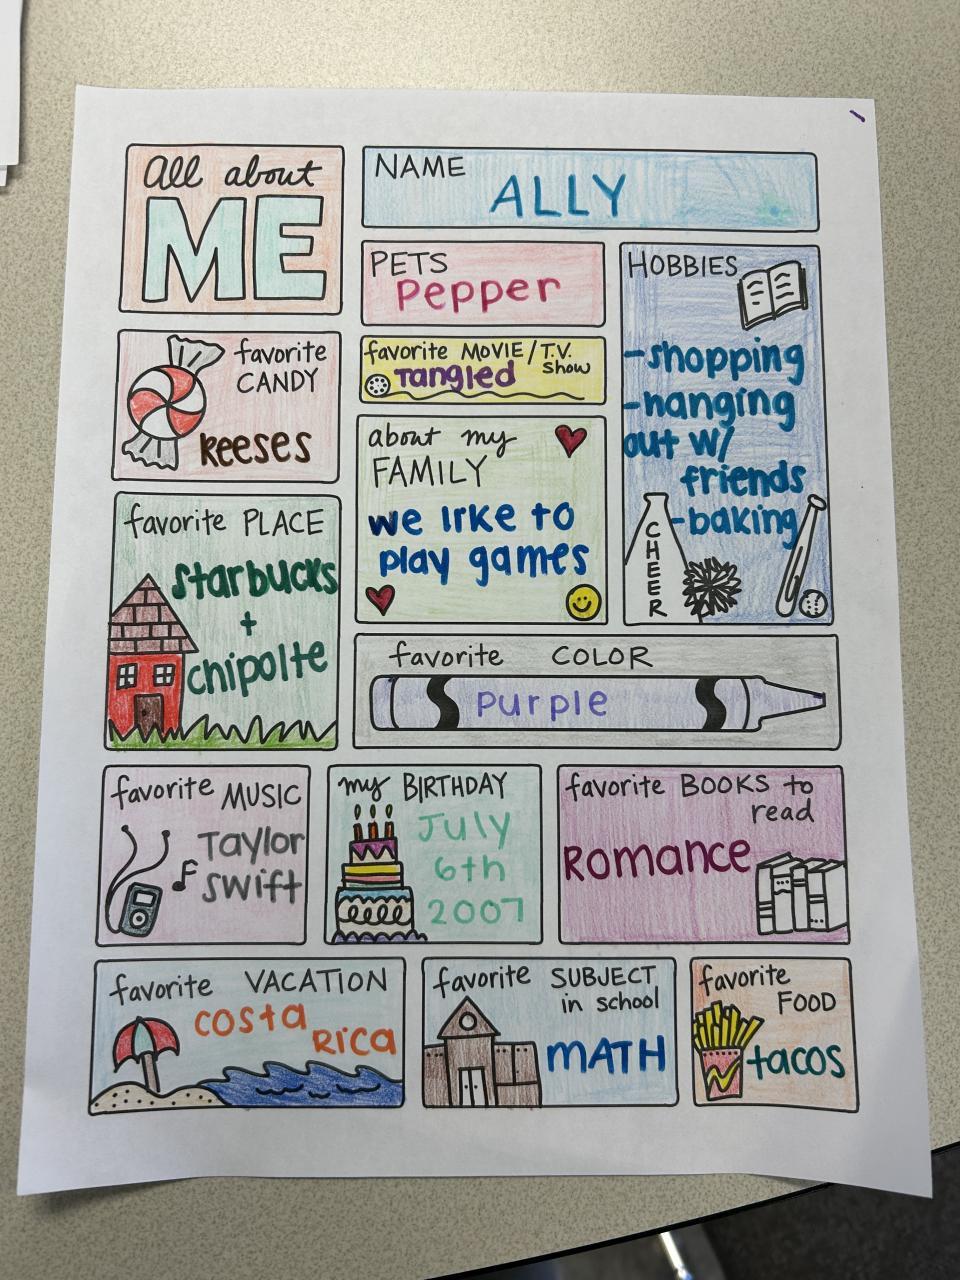 All about
ME
NAME
ALLY
PETS
Pepper
HOBBIES
-shopping
-hanging
out w/
friends
-baking
CHEER
favorite
CANDY
Reeses
favorite MOVIE/T.V.
Show
Tangled
about my
FAMILY
we like to
play games
favorite PLACE
starbucks
+
chipolte
favorite COLOR
Purple
favorite MUSIC
Taylor
Swift
my BIRTHDAY
July
6th
2007
favorite BOOKS to
read
Romance
favorite VACATION
Costa
Rica
favorite SUBJECT
in school
MATH
favorite
FOOD
tacos